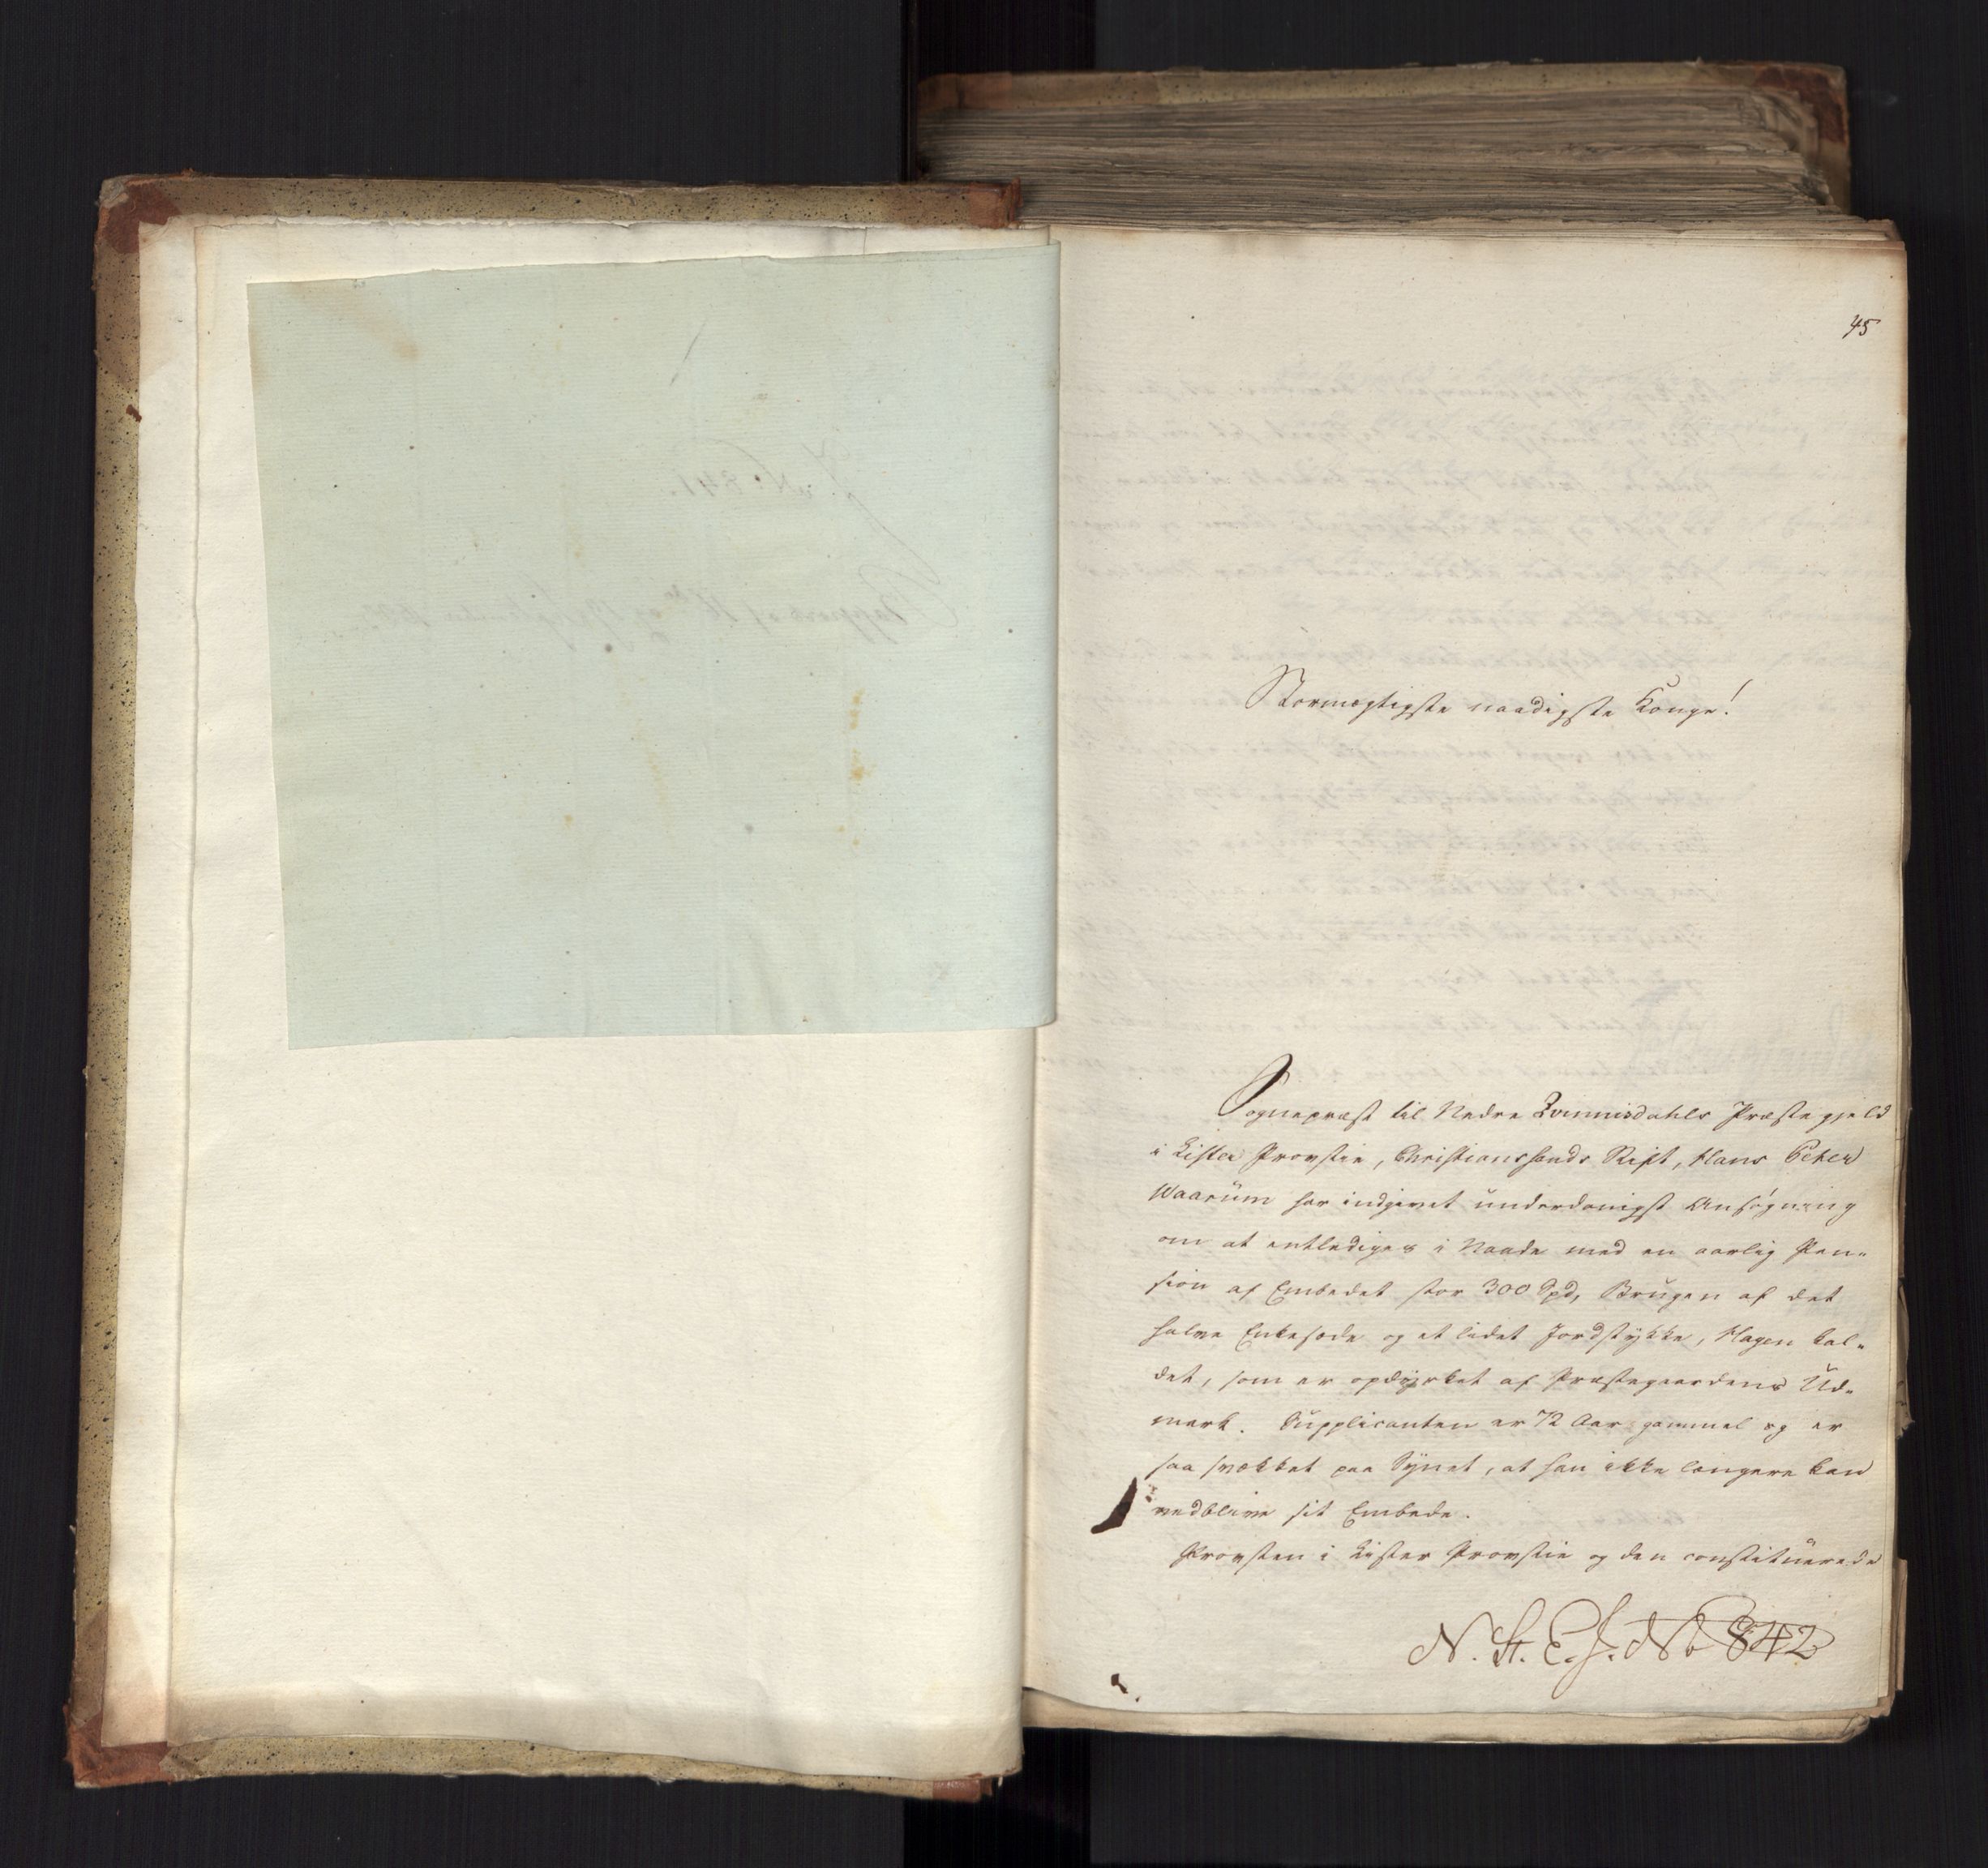 45
Stormægtigste naadigste Konge!
Sognepræst til Nedre Qvinnisdahls Præstegjeld
i Lister Provstie, Christianssands Stift, Hans Peter
Waarüm har indgivet underdanigst Ansøgning
om at entlediges i Naade med en aarlig Pen-
sion af Embedet stor 300 Spd, Brugen af det
halve Enkesæde og et lidet Jordstykke, Hagen kal-
det, som er opdyrket af Præstegaardens Ud-
mark. Supplicanten er 72 Aar gammel og er
saa svækket paa Synet, at han ikke længere kan
vedblive sit Embede.
Provsten i Lister Provstie og den constituerede
N. St. E. J. No 842